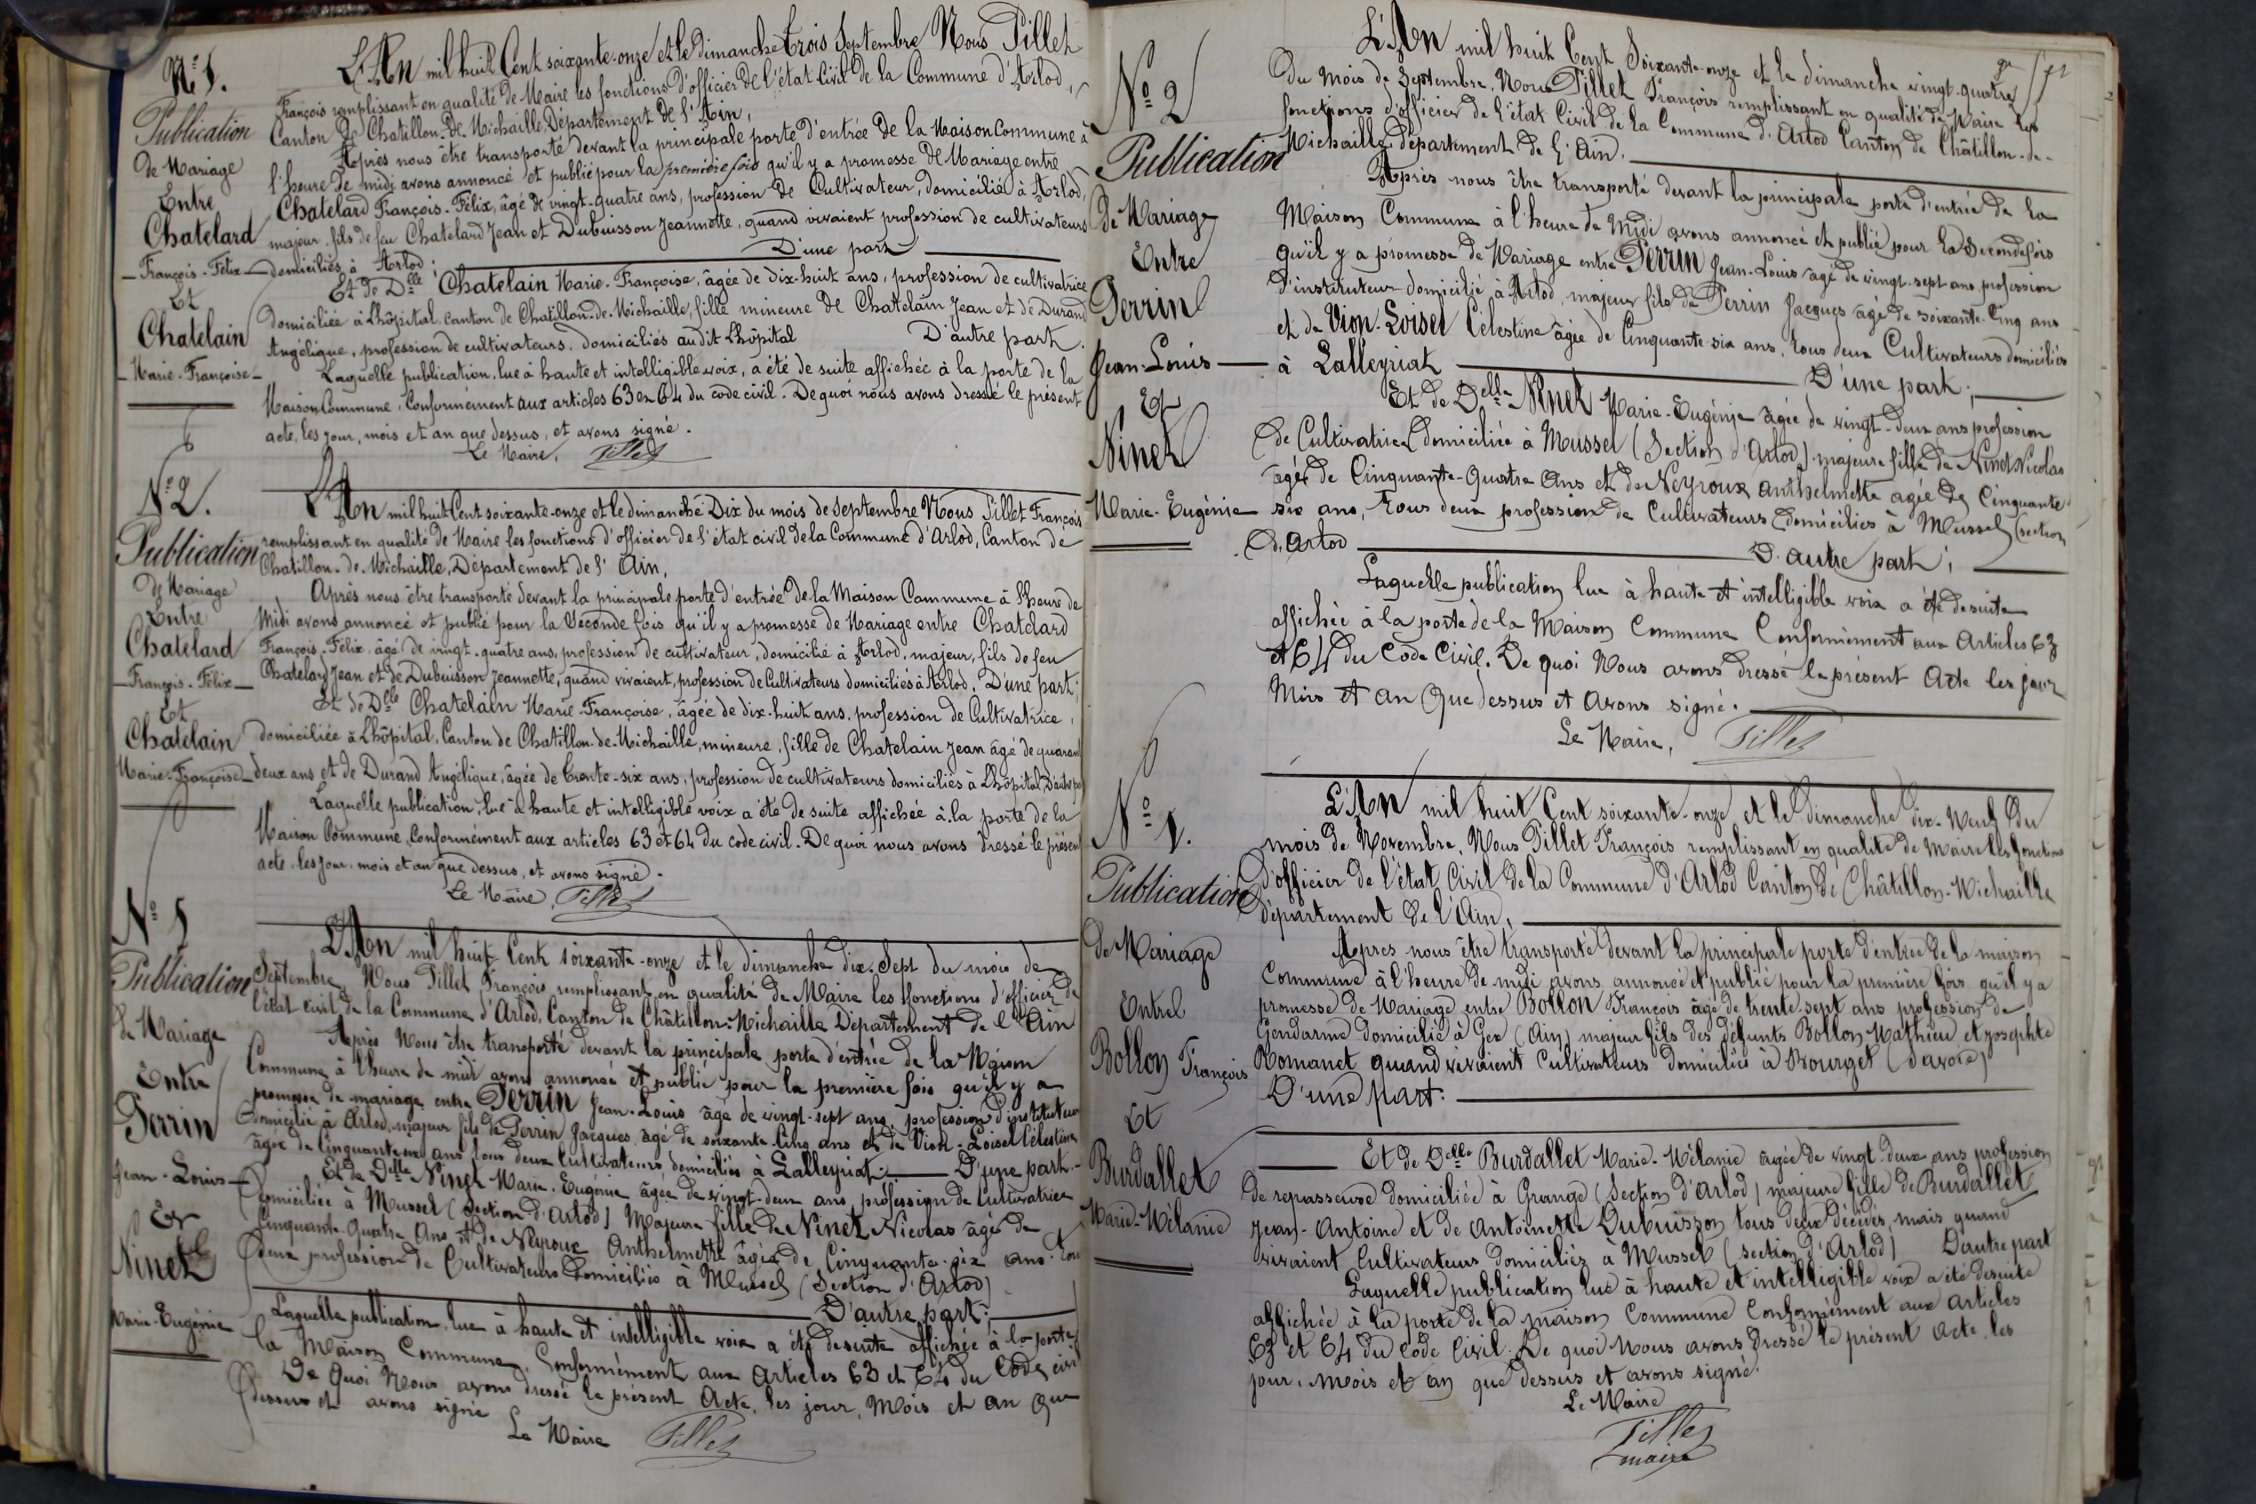 N° 1.
Publication
de Mariage
Entre
Chatelard
François-Félix
Et
Chatelain
Marie-Françoise
L'An mil huit Cent soixante-onze et le dimanche trois Septembre Nous Pillet
François remplissant en qualité de Maire les fonctions d'officier de l'état Civil de la Commune d'Arlod,
Canton de Chatillon-de-Michaille, Département de l'Ain,
Après nous être transporté devant la principale porte d'entrée de la Maison Commune à
l'heure de midi avons annoncé et publié pour la première fois qu'il y a promesse de Mariage entre
Chatelard François-Félix, âgé de vingt-quatre ans, profession de Cultivateur, domicilié à Arlod,
majeur, fils de feu Chatelard Jean et Dubuisson Jeannette, quand vivaient profession de cultivateurs
domiciliés à Arlod; D'une part
Et de Dlle Chatelain Marie-Françoise, âgée de dix-huit ans, profession de cultivatrice
domiciliée à Lhôpital canton de Chatillon-de-Michaille, fille mineure de Chatelain Jean et de Durand
Angélique, profession de cultivateurs, domiciliés au dit Lhôpital D'autre part.
Laquelle publication, lue à haute et intelligible voix, a été de suite affichée à la porte de la
Maison Commune, Conformément aux articles 63 et 64 du code civil. De quoi nous avons dressé le présent
acte, les jour, mois et an que dessus, et avons signé.
Le Maire, Pillet
N° 2.
Publication
de Mariage
Entre
Chatelard
François-Félix
Et
Chatelain
Marie-Françoise
L'An mil huit Cent soixante-onze et le dimanche Dix du mois de Septembre Nous Pillet François
remplissant en qualité de Maire les fonctions d'officier de l'état civil de la Commune d'Arlod, Canton de
Chatillon-de-Michaille, Département de l'Ain,
Après nous être transporté devant la principale porte d'entrée de la Maison Commune à l'heure de
Midi avons annoncé et publié pour la Seconde fois qu'il y a promesse de Mariage entre Chatelard
François-Félix, âgé de vingt-quatre ans, profession de cultivateur, domicilié à Arlod, majeur, fils de feu
Chatelard Jean et de Dubuisson Jeannette, quand vivaient, profession de Cultivateurs domiciliés à Arlod. D'une part;
Et de Dlle Chatelain Marie-Françoise, âgée de dix-huit ans, profession de Cultivatrice,
domiciliée à Lhôpital, Canton de Chatillon-de-Michaille, mineure, fille de Chatelain Jean âgé de quarante
deux ans et de Durand Angélique, âgée de trente-six ans, profession de cultivateurs domiciliés à Lhôpital, D'autre part
Laquelle publication, lue à haute et intelligible voix a été de suite affichée à la porte de la
Maison Commune, Conformément aux articles 63 et 64 du code civil. De quoi nous avons dressé le présent
acte, les jour, mois et an que dessus, et avons signé.
Le Maire, Pillet
N° 1
Publication
de Mariage
Entre
Perrin
Jean-Louis
Et
Ninet
Marie-Eugénie
L'An mil huit Cent soixante-onze et le dimanche dix-Sept du mois de
Septembre, Nous Pillet François remplissant en qualité de Maire les fonctions d'officier de
l'état civil de la Commune d'Arlod, Canton de Châtillon-Michaille Département de l'Ain
Après Nous être transporté devant la principale porte d'entrée de la Maison
Commune à l'heure de midi avons annoncé et publié pour la première fois qu'il y a
promesse de mariage entre Perrin Jean-Louis âgé de vingt-sept ans, profession d'instituteur
Domicilié à Arlod, majeur fils de Perrin Jacques, âgé de soixante-cinq ans et de Vion-Loisel Célestine
âgée de Cinquante-six ans tous deux Cultivateurs domiciliés à Lalleyriat; D'une part.
Et de Dlle Ninet Marie-Eugénie âgée de vingt-deux ans, profession de Cultivatrice
Domiciliée à Mussel (Section d'Arlod) Majeure fille de Ninet Nicolas âgé de
Cinquante-Quatre Ans et de Neyroux Anthelmette âgée de Cinquante-six ans, tous
deux profession de Cultivateurs Domiciliés à Mussel (Section d'Arlod)
D'autre part:
Laquelle publication, lue à haute et intelligible voix a été de suite affichée à la porte
la Maison Commune, Conformément aux Articles 63 et 64 du Code civil
De Quoi Nous avons dressé le présent Acte, les jour, Mois et an Que
dessus et avons signé
Le Maire Pillet
N° 2
Publication
de Mariage
Entre
Perrin
Jean-Louis
Et
Ninet
Marie-Eugénie
L'An mil huit Cent Soixante-onze et le dimanche vingt-quatre
du Mois de Septembre, Nous Pillet François remplissant en qualité de Maire les
fonctions d'officier de l'état Civil de la Commune d'Arlod Canton de Châtillon-de-
Michaille, département de l'Ain.
Après nous être transporté devant la principale porte d'entrée de la
Maison Commune à l'heure de Midi avons annoncé et publié pour la Seconde fois
qu'il y a promesse de Mariage entre Perrin Jean-Louis âgé de vingt-sept ans profession
d'instituteur domicilié à Arlod, majeur fils de Perrin Jacques âgé de soixante-Cinq ans
et de Vion-Loisel Célestine âgée de Cinquante-six ans, tous deux Cultivateurs domiciliés
à Lalleyriat D'une part;
Et de Delle Ninet Marie-Eugénie âgée de vingt-deux ans profession
de Cultivatrice domiciliée à Mussel (Section d'Arlod) majeure fille de Ninet Nicolas
âgé de Cinquante-Quatre Ans et de Neyroux Anthelmette âgée de Cinquante
six ans, tous deux profession de Cultivateurs domiciliés à Mussel (section
d'Arlod D'autre part;
Laquelle publication lue à haute et intelligible voix a été de suite
affichée à la porte de la Maison Commune Conformément aux Articles 63
et 64 du Code Civil. De quoi Nous avons dressé le présent Acte les jour
Mois et an Que dessus et avons signé.
Le Maire, Pillet
N° 1.
Publication
de Mariage
Entre
Bollon François
Et
Burdallet
Marie-Mélanie
L'An mil huit Cent soixante-onze et le dimanche dix-Neuf du
mois de Novembre, Nous Pillet François remplissant en qualité de Maire les fonctions
d'officier de l'état Civil de la Commune d'Arlod Canton de Châtillon-Michaille
département de l'Ain,
Après nous être transporté devant la principale porte d'entrée de la maison
Commune à l'heure de midi avons annoncé et publié pour la première fois qu'il y a
promesse de Mariage entre Bollon François âgé de trente-sept ans profession de
Gendarme domicilié à Gex (Ain) majeur fils des défunts Bollon Mathieu et Josephte
Romanet quand vivaient Cultivateurs domiciliés à Bourget (Savoie)
D'une part:
Et de Delle Burdallet Marie-Mélanie âgée de vingt-deux ans profession
de repasseuse domiciliée à Grange (Section d'Arlod) majeure fille de Burdallet
Jean-Antoine et de Antoinette Dubuisson tous deux décédés, mais quand
vivaient Cultivateurs domiciliés à Mussel (section d'Arlod) D'autre part
Laquelle publication lue à haute et intelligible voix a été de suite
affichée à la porte de la maison Commune Conformément aux articles
63 et 64 du Code Civil. De quoi Nous avons dressé le présent acte les
jour, Mois et an que dessus et avons signé.
Le Maire
Pillet
maire